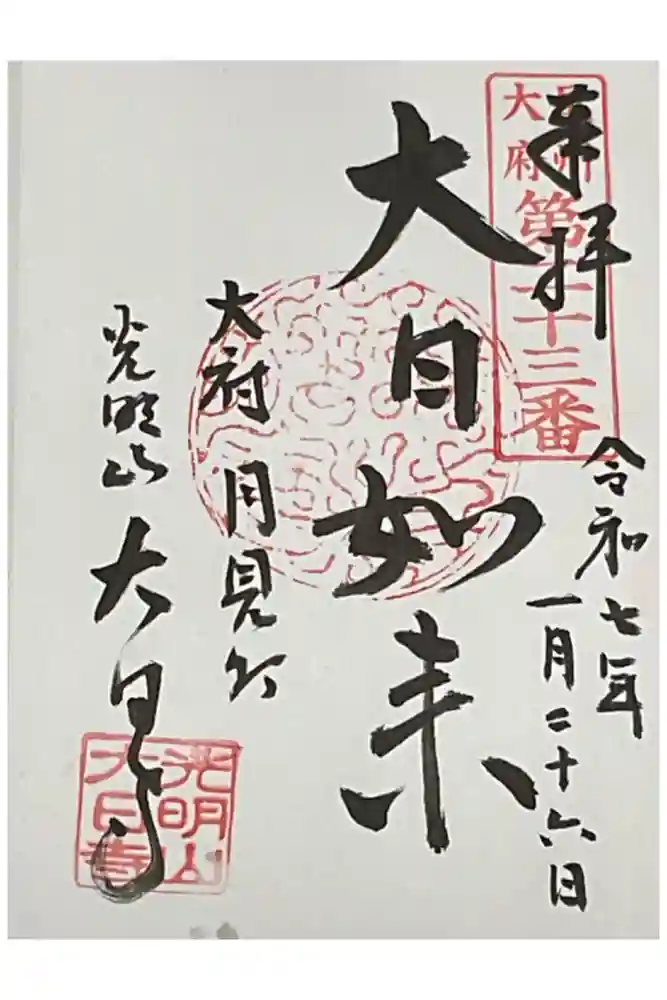 奉拝
大府
第二十三番
令和七年
一月二十六日
大日如来
大府 月見
光明山 大日寺
光明山
大日寺